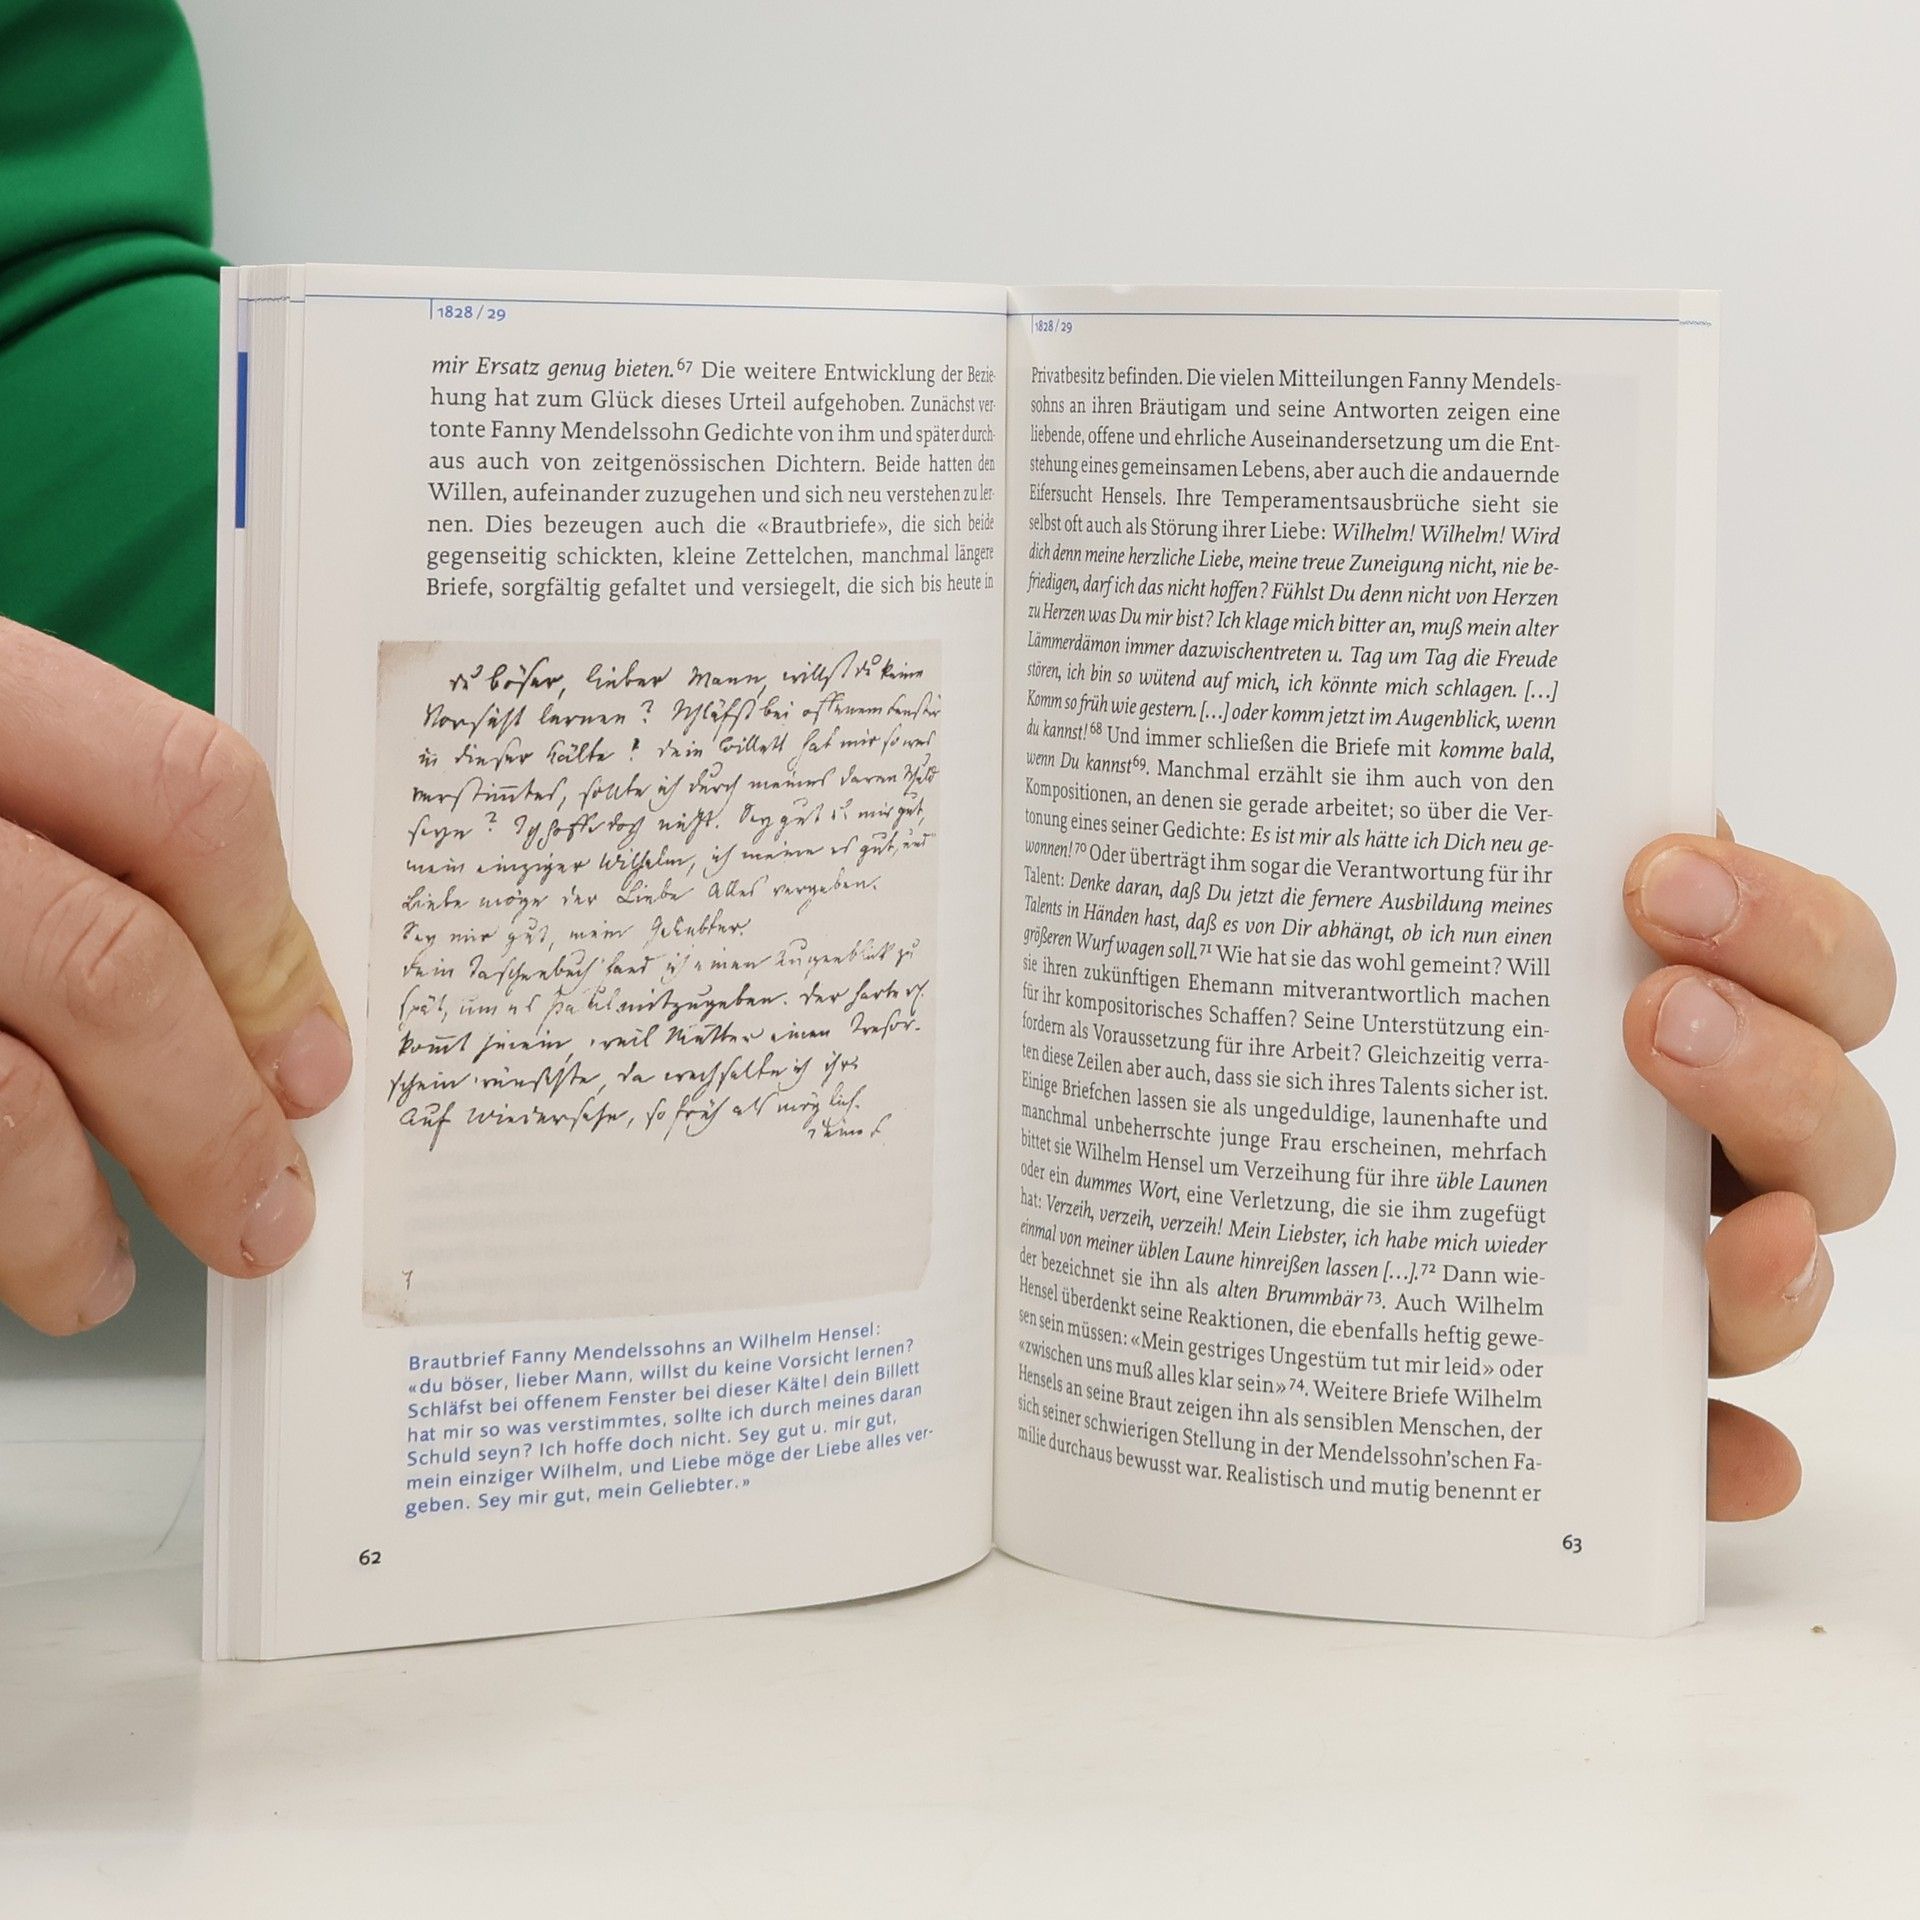 1828 / 29
mir Ersatz genug bieten.⁶⁷ Die weitere Entwicklung der Bezie-
hung hat zum Glück dieses Urteil aufgehoben. Zunächst ver-
tonte Fanny Mendelssohn Gedichte von ihm und später durch-
aus auch von zeitgenössischen Dichtern. Beide hatten den
Willen, aufeinander zuzugehen und sich neu verstehen zu ler-
nen. Dies bezeugen auch die «Brautbriefe», die sich beide
gegenseitig schickten, kleine Zettelchen, manchmal längere
Briefe, sorgfältig gefaltet und versiegelt, die sich bis heute in
du böser, lieber Mann, willst du keine
Vorsicht lernen? Schläfst bei offenem Fenster
in dieser Kälte! dein Billett hat mir so was
verstimmtes, sollte ich durch meines daran Schuld
seyn? Ich hoffe doch nicht. Sey gut u. mir gut,
mein einziger Wilhelm, ich meine es gut, und
Liebe möge der Liebe Alles vergeben.
Sey mir gut, mein Geliebter.
dein Taschenbuch fand ich einen Augenblick zu
spät, um es Paul mitzugeben. Der
kommt herein, weil Mutter einen Tresor-
schein wünschte, da wechselte ich ihr.
Auf Wiedersehn, so früh als möglich.
deine F.
7
Brautbrief Fanny Mendelssohns an Wilhelm Hensel:
«du böser, lieber Mann, willst du keine Vorsicht lernen?
Schläfst bei offenem Fenster bei dieser Kälte! dein Billett
hat mir so was verstimmtes, sollte ich durch meines daran
Schuld seyn? Ich hoffe doch nicht. Sey gut u. mir gut,
mein einziger Wilhelm, und Liebe möge der Liebe alles ver-
geben. Sey mir gut, mein Geliebter.»
62
1828 / 29
Privatbesitz befinden. Die vielen Mitteilungen Fanny Mendels-
sohns an ihren Bräutigam und seine Antworten zeigen eine
liebende, offene und ehrliche Auseinandersetzung um die Ent-
stehung eines gemeinsamen Lebens, aber auch die andauernde
Eifersucht Hensels. Ihre Temperamentsausbrüche sieht sie
selbst oft auch als Störung ihrer Liebe: Wilhelm! Wilhelm! Wird
dich denn meine herzliche Liebe, meine treue Zuneigung nicht, nie be-
friedigen, darf ich das nicht hoffen? Fühlst Du denn nicht von Herzen
zu Herzen was Du mir bist? Ich klage mich bitter an, muß mein alter
Lämmerdämon immer dazwischentreten u. Tag um Tag die Freude
stören, ich bin so wütend auf mich, ich könnte mich schlagen. [...]
Komm so früh wie gestern. [...] oder komm jetzt im Augenblick, wenn
du kannst!⁶⁸ Und immer schließen die Briefe mit komme bald,
wenn Du kannst⁶⁹. Manchmal erzählt sie ihm auch von den
Kompositionen, an denen sie gerade arbeitet; so über die Ver-
tonung eines seiner Gedichte: Es ist mir als hätte ich Dich neu ge-
wonnen!⁷⁰ Oder überträgt ihm sogar die Verantwortung für ihr
Talent: Denke daran, daß Du jetzt die fernere Ausbildung meines
Talents in Händen hast, daß es von Dir abhängt, ob ich nun einen
größeren Wurf wagen soll.⁷¹ Wie hat sie das wohl gemeint? Will
sie ihren zukünftigen Ehemann mitverantwortlich machen
für ihr kompositorisches Schaffen? Seine Unterstützung ein-
fordern als Voraussetzung für ihre Arbeit? Gleichzeitig verra-
ten diese Zeilen aber auch, dass sie sich ihres Talents sicher ist.
Einige Briefchen lassen sie als ungeduldige, launenhafte und
manchmal unbeherrschte junge Frau erscheinen, mehrfach
bittet sie Wilhelm Hensel um Verzeihung für ihre üble Launen
oder ein dummes Wort, eine Verletzung, die sie ihm zugefügt
hat: Verzeih, verzeih, verzeih! Mein Liebster, ich habe mich wieder
einmal von meiner üblen Laune hinreißen lassen [...].⁷² Dann wie-
der bezeichnet sie ihn als alten Brummbär⁷³. Auch Wilhelm
Hensel überdenkt seine Reaktionen, die ebenfalls heftig gewe-
sen sein müssen: «Mein gestriges Ungestüm tut mir leid» oder
«zwischen uns muß alles klar sein»⁷⁴. Weitere Briefe Wilhelm
Hensels an seine Braut zeigen ihn als sensiblen Menschen, der
sich seiner schwierigen Stellung in der Mendelssohn'schen Fa-
milie durchaus bewusst war. Realistisch und mutig benennt er
63